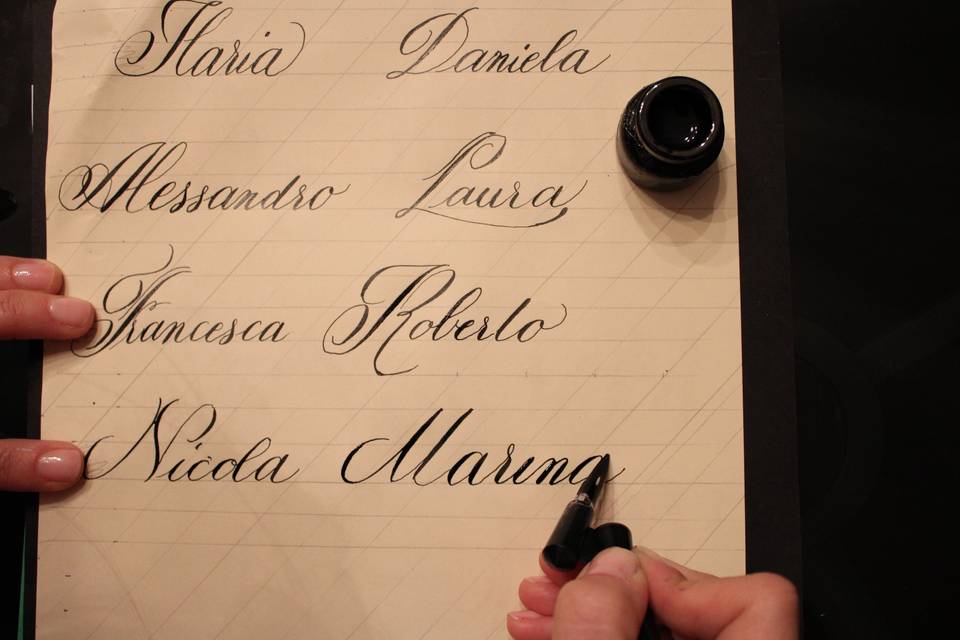 Ilaria Daniela
Alessandro Laura
Francesca Roberto
Nicola Marina